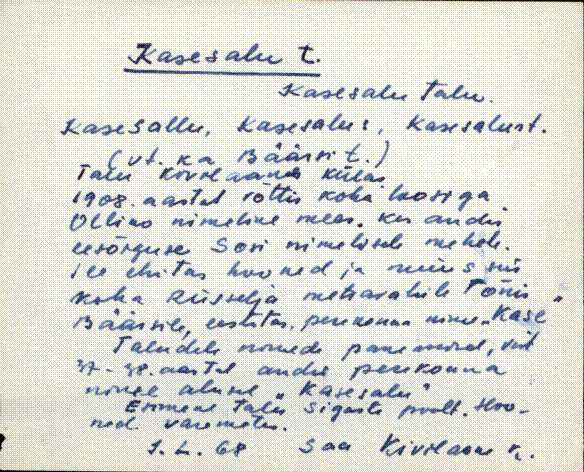 Kasesalu t.
Kasesalu talu.
Kasesallu, Kasesalus, Kasesalust.
(vt. ka Bäärsi t.)
Talu Kivilaane külas
1908. aastal võttis koha loosiga
Ollino nimeline mees. kes andis
eesõiguse Sosi nimelisele mehele.
see ehitas hooned ja müüs siis
koha Rüsselja metsavahile Tõnis
Bäärsile, eestistas. perekonna nime „Kase"
Taludele nimede panemisel,
37-38. aastal andis perekonna
nime alusel „Kasesalu"
Esimene talu Sigaste poolt. Hoo-
ned varemetes.
1. L. 68 Saa Kivilaane k.